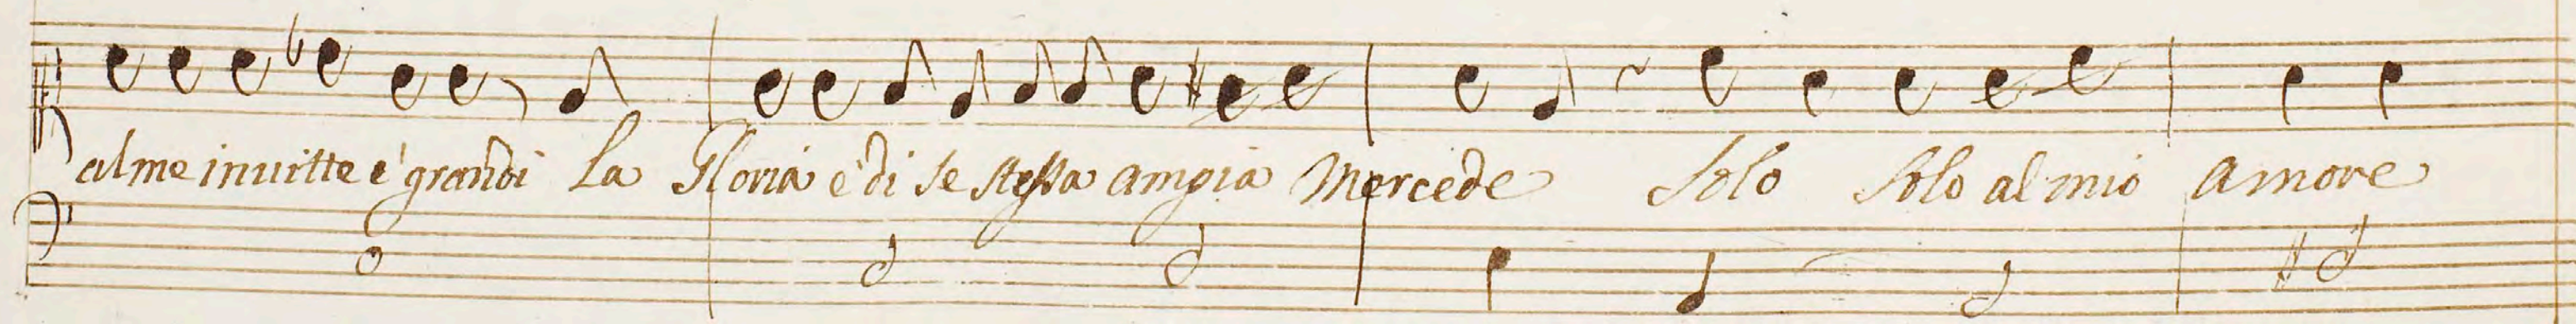 alme invitte e' grandi La Gloria e' di se stessa ampia Mercede Solo Solo al mio Amore